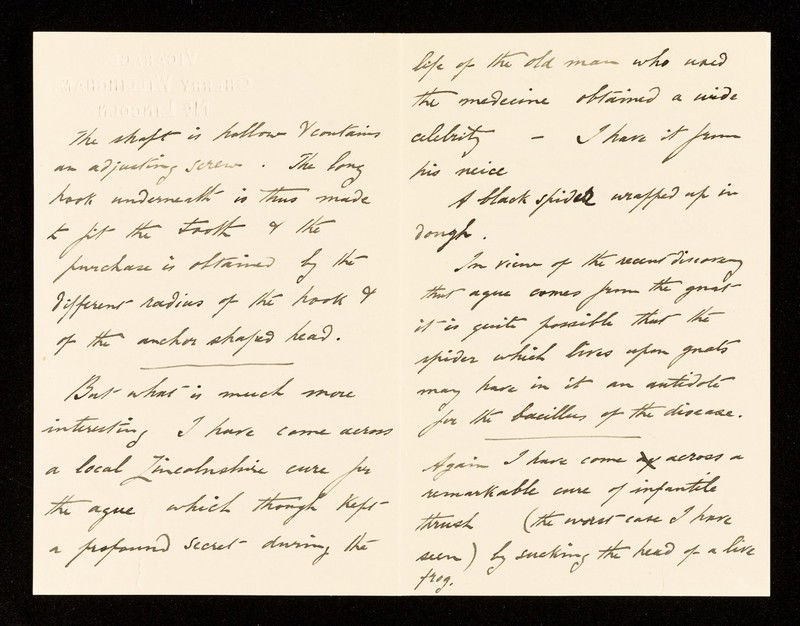 VICARAGE
CHERRY WILLINGHAM
LINCOLN
The shaft is hollow & contains
an adjusting screw. The long
hook underneath is thus made
to fit the tooth & the
purchase is obtained by the
different radius of the hook &
of the anchor shaped head.
But what is much more
interesting I have come across
a local Lincolnshire cure for
the ague which though kept
a profound secret during the
life of the old man who used
the medecine obtained a wide
celebrity - I have it from
his neice
A black spider wrapped up in
dough.
In view of the recent discovery
that ague comes from the gnat
it is quite possible that the
spider which lives upon gnats
may have in it an antidote
for the bacillus of the disease.
Again I have come across a
remarkable cure of infantile
thrush (the worst case I have
seen) by sucking the head of a live
frog.